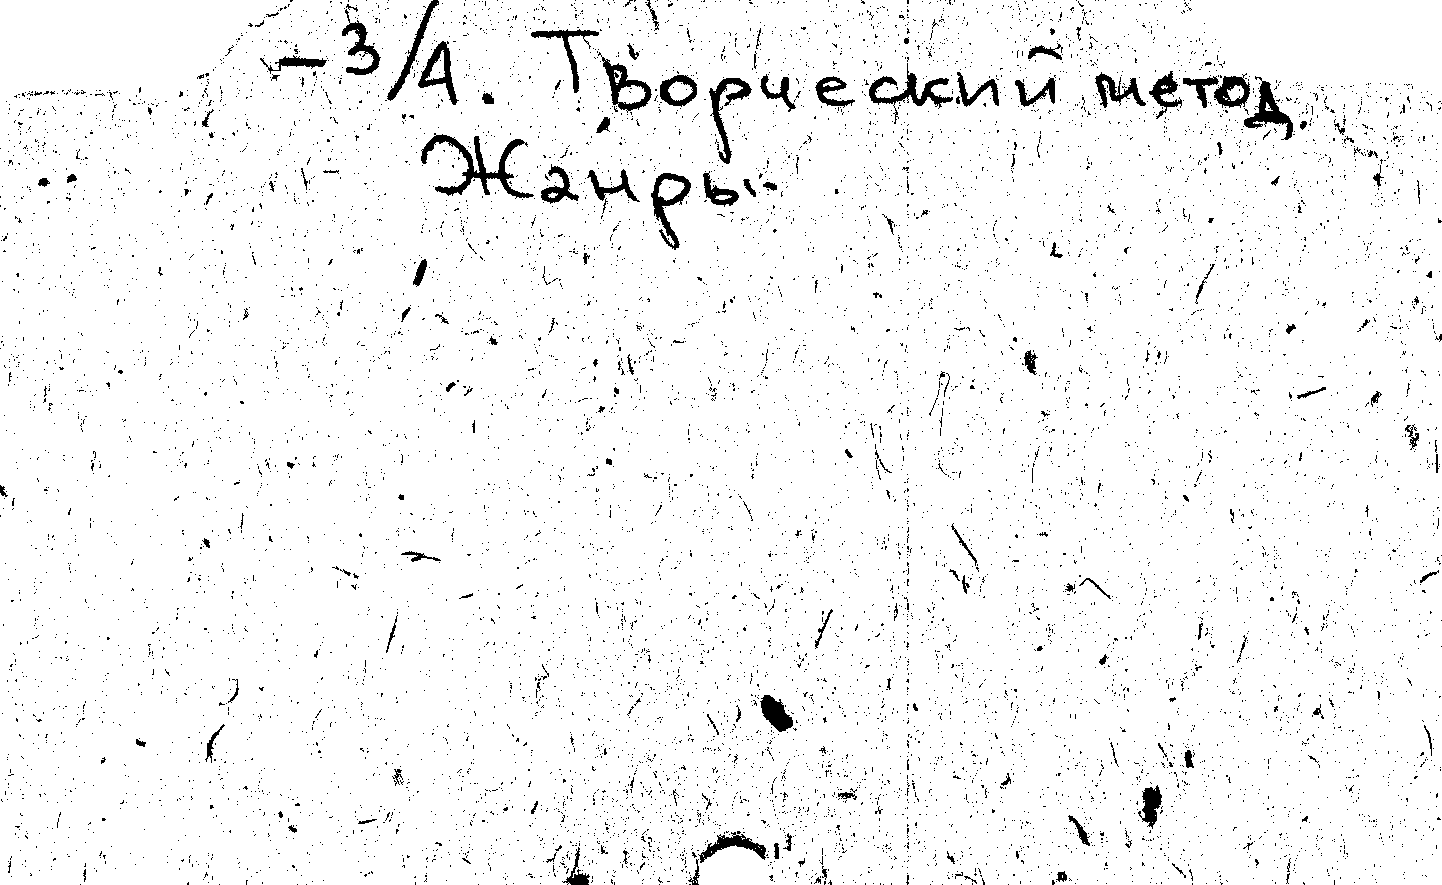 - 3/4. Творческий метод.
Жанры.